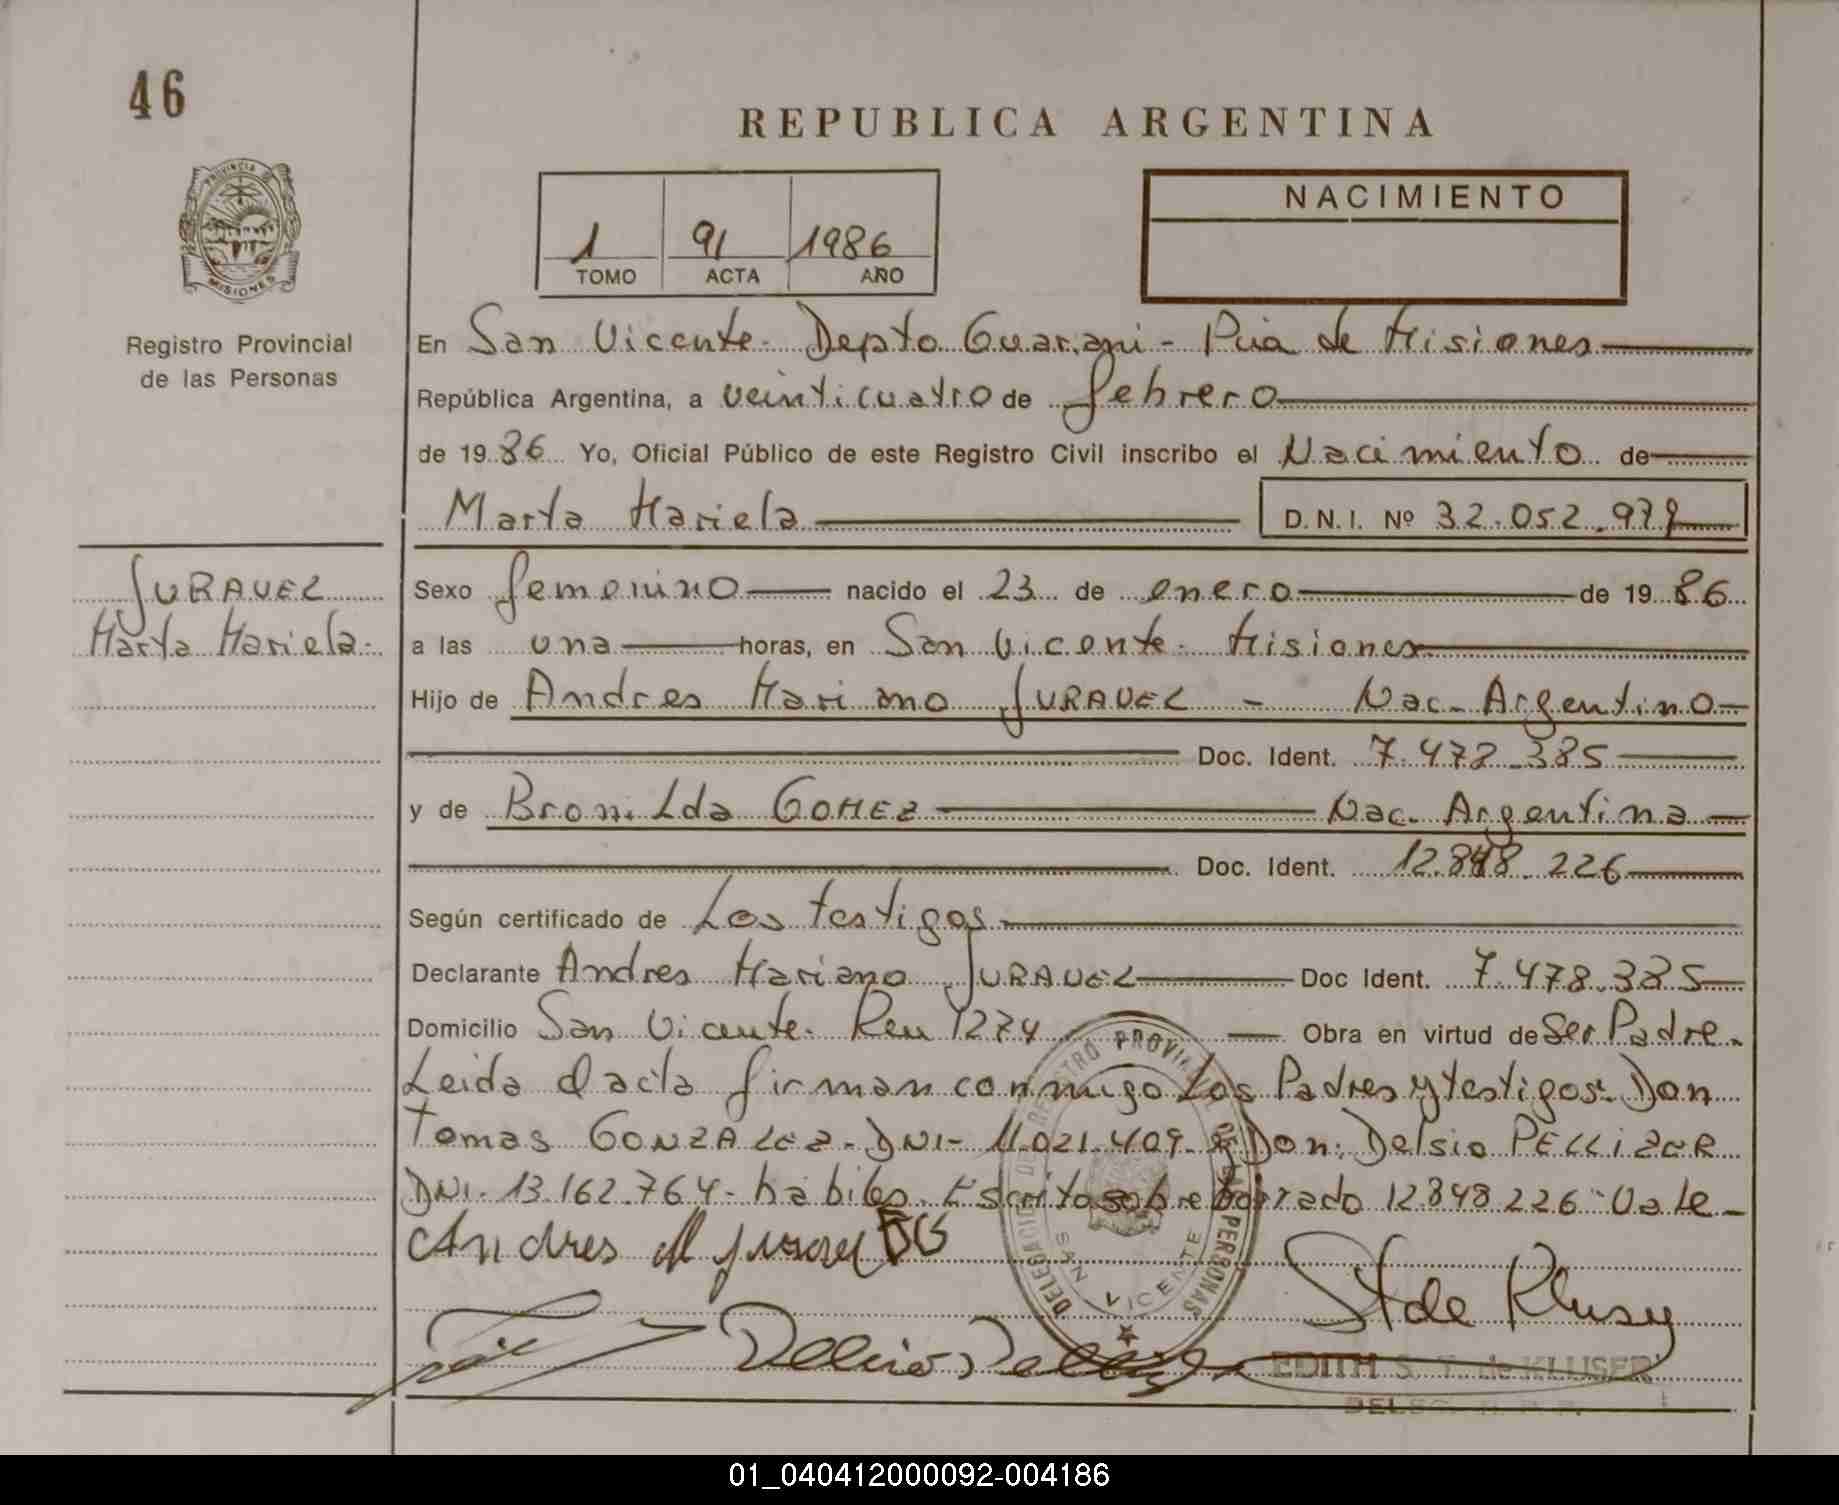 46
REPUBLICA ARGENTINA
PROVINCIA DE
MISIONES
1 91 1986
TOMO ACTA AÑO
NACIMIENTO
Registro Provincial
de las Personas
En San Vicente - Depto Guarani - Pcia de Misiones
República Argentina, a veinticuatro de febrero
de 1986 Yo, Oficial Público de este Registro Civil inscribo el Nacimiento de
Marta Mariela D.N.I. Nº 32.052.979
JURAVEL
Marta Mariela.
Sexo femenino nacido el 23 de enero de 1986
a las una horas, en San Vicente - Misiones
Hijo de Andres Mariano JURAVEL - Nac. Argentino
Doc. Ident. 7.478.385
y de Bronilda GOMEZ Nac. Argentina
Doc. Ident. 12.848.226
Según certificado de Los testigos
Declarante Andres Mariano JURAVEL Doc Ident. 7.478.385
Domicilio San Vicente. 1274 Obra en virtud de ser Padre.
Leida el acta firman conmigo Los Padres y testigos: Don
Tomas GONZALEZ - DNI - 11.021.409. y Don: Delsio PELLIZER
DNI - 13.162.764 - habiles. Escrito sobre borrado 12.848.226 - Vale -
Andres M Juravel BG
DELEGACION DEL REGISTRO PROVINCIAL DE LAS PERSONAS
SAN VICENTE
St de Kluser
EDITH S. T. de KLUSER
01_040412000092-004186